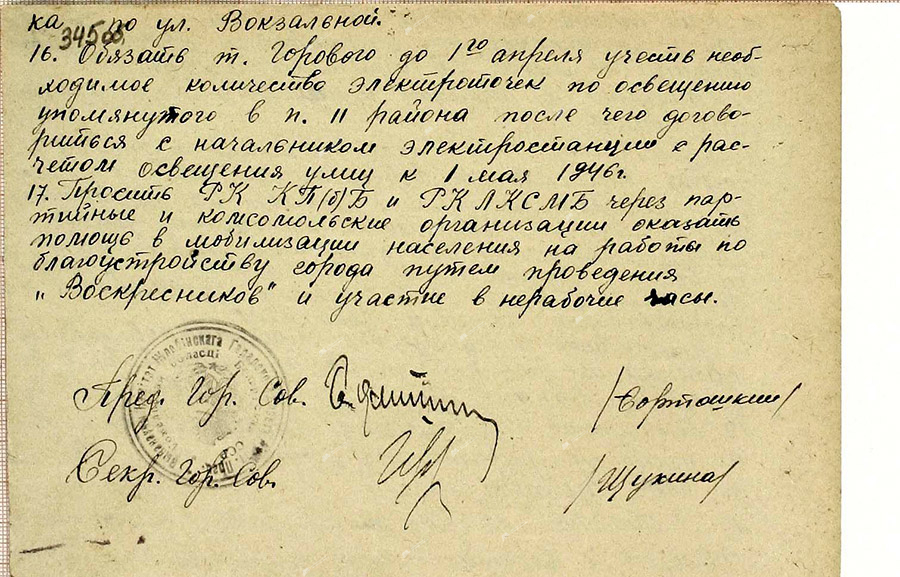 ка по ул. Вокзальной.
34508
16. Обязать т. Горового до 1го апреля учесть необ-
ходимое количество электроточек по освещению
упомянутого в п. 11 района после чего догово-
риться с начальником электростанции с рас-
четом освещения улиц к 1 мая 1946г.
17. Просить РК КП(б)Б и РК ЛКСМБ через пар-
тийные и комсомольские организации оказать
помощь в мобилизации населения на работы по
благоустройству города путем проведения
„Воскресников" и участие в нерабочие часы.
Жлобінскага
вобласці
Пред. Гор. Сов. /Борташкин/
Секр. Гор. Сов. /Щукина/